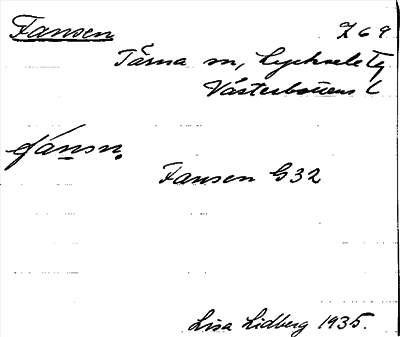 Fansen Z 6 9
Tärna sn, Lycksele Tg
Västerbottens L
fánsn.
Fansen G32
Lisa Lidberg 1935.